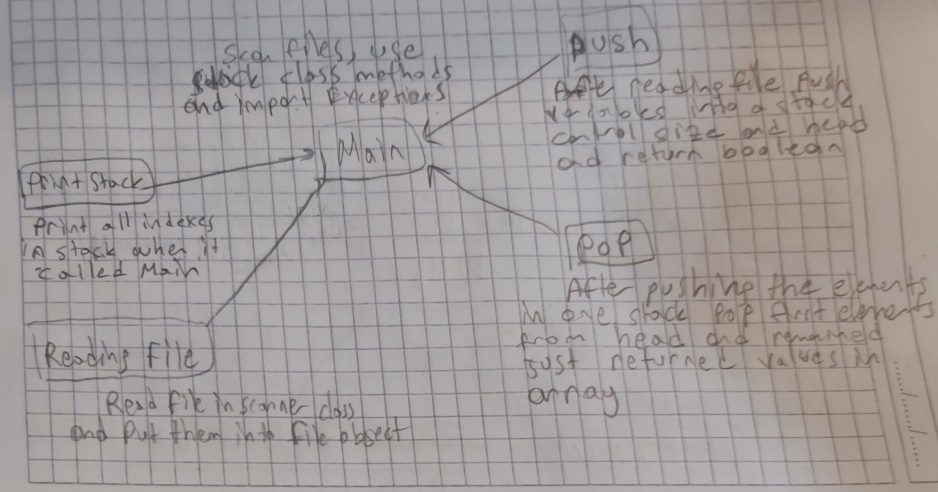 Scan files, use
stack class methods
and import Exceptions
Main
push
After reading file push
variables into a stack,
control size and head
and return boolean
Print Stack
Print all indexes
in stack when it
called Main
POP
After pushing the elements
in one stack pop first elements
from head and remained
just returned values in
array
Reading File
Read file in scanner class
and put them into file object